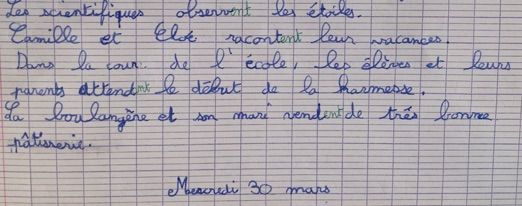 Les scientifiques observent les étoiles.
Camille et Eloé racontent leur vacances.
Dans la cour de l'école, les élèves et leurs
parents attendent le début de la karmesse.
La boulangère et son mari vendent de trés bonne
pâtisserie.
Mercredi 30 mars